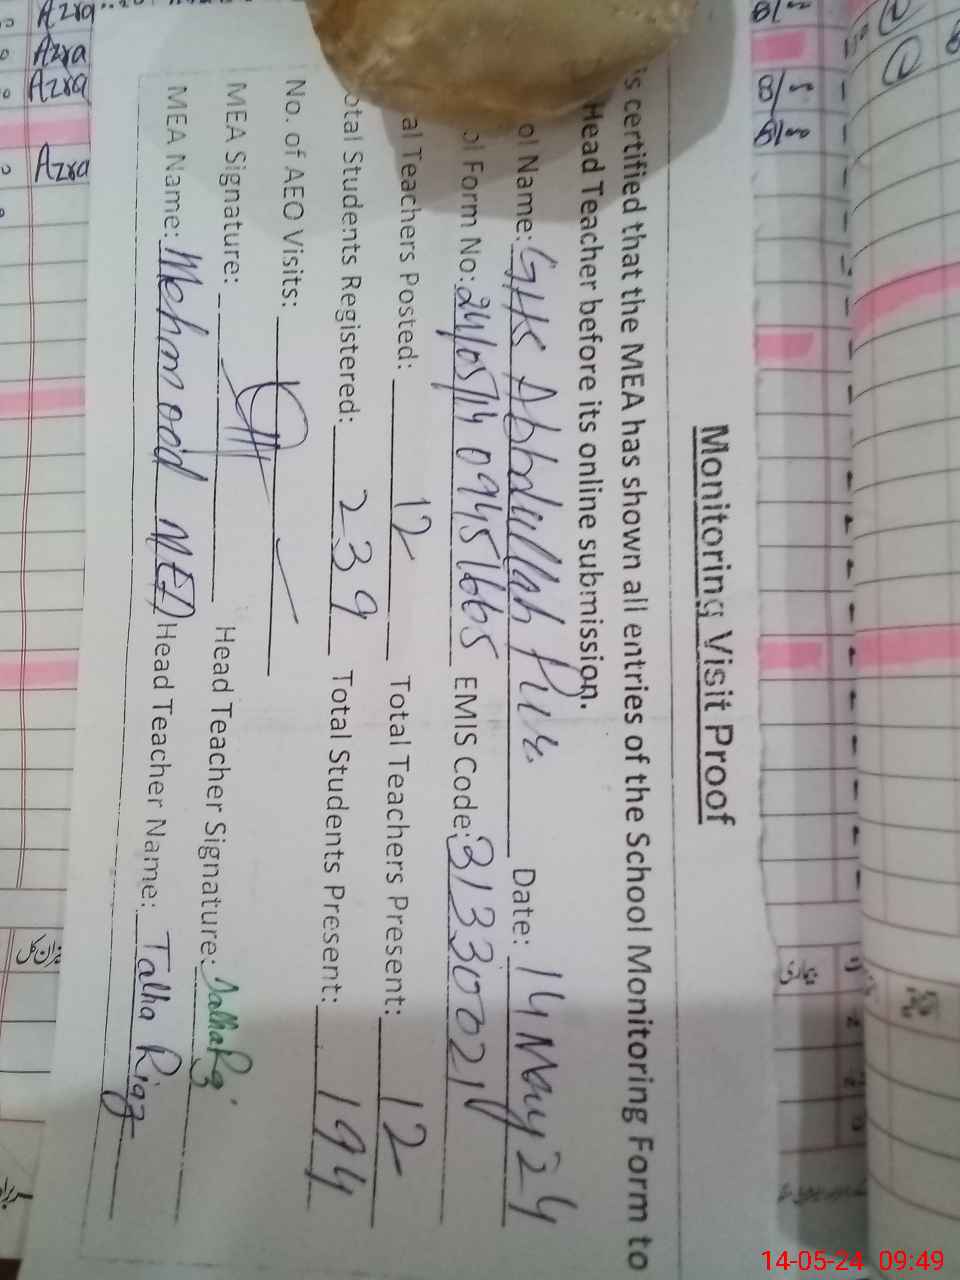 Monitoring Visit Proof
is certified that the MEA has shown all entries of the School Monitoring Form to
Head Teacher before its online submission.
ol Name: GHS Abdullah Pur. Date: 14 May 24
ol Form No: 24/05/14 09451665 EMIS Code: 31330021
al Teachers Posted: 12 Total Teachers Present: 12
otal Students Registered: 239 Total Students Present: 194
No. of AEO Visits:
MEA Signature: Head Teacher Signature: Talha Rz
MEA Name: Mehmood MEA Head Teacher Name: Talha Riaz
Azra
Azra
Azra
Azra
14-05-24 09:49